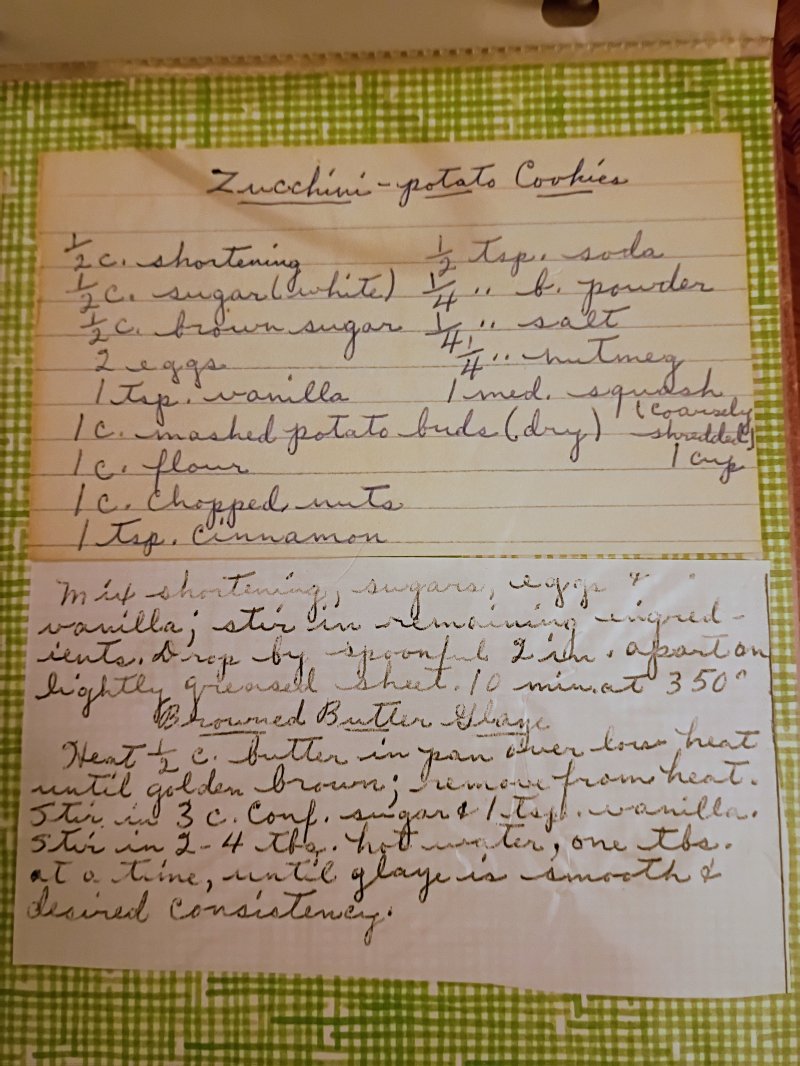 Zucchini-potato Cookies
1/2 c. shortening
1/2 c. sugar (white)
1/2 c. brown sugar
2 eggs
1 tsp. vanilla
1 c. mashed potato buds (dry)
1 c. flour
1 c. chopped nuts
1 tsp. cinnamon
1/2 tsp. soda
1/4 " b. powder
1/4 " salt
1/4 " nutmeg
1 med. squash
(coarsely
shredded)
1 cup
Mix shortening, sugars, eggs &
vanilla; stir in remaining ingred-
ients. Drop by spoonful 2 in. apart on
lightly greased sheet. 10 min. at 350°
Browned Butter Glaze
Heat 1/2 c. butter in pan over low heat
until golden brown; remove from heat.
Stir in 3 c. Conf. sugar & 1 tsp. vanilla.
Stir in 2-4 tbs. hot water, one tbs.
at a time, until glaze is smooth &
desired consistency.